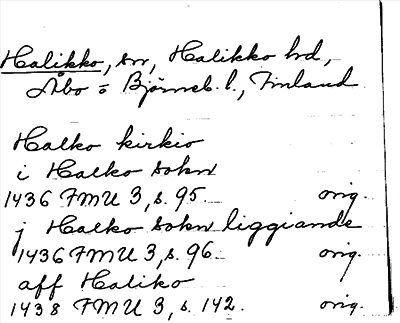 Halikko, sn, Halikko hd,
Åbo o Björneb. l., Finland
Halko kirkio
i Halko sokn
1436 FMU 3, s. 95. orig.
j Halko sokn liggiande
1436 FMU 3, s. 96. orig.
aff Haliko
1438 FMU 3, s. 142. orig.